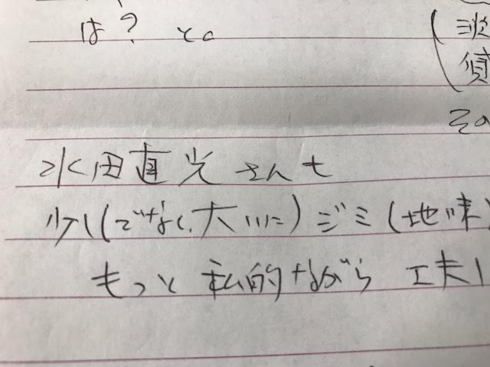 は？ と。
(淡
償
その
水田直光さんも
少し(でなく、大いに)ジミ(地味)
もっと私的ながら 工夫し